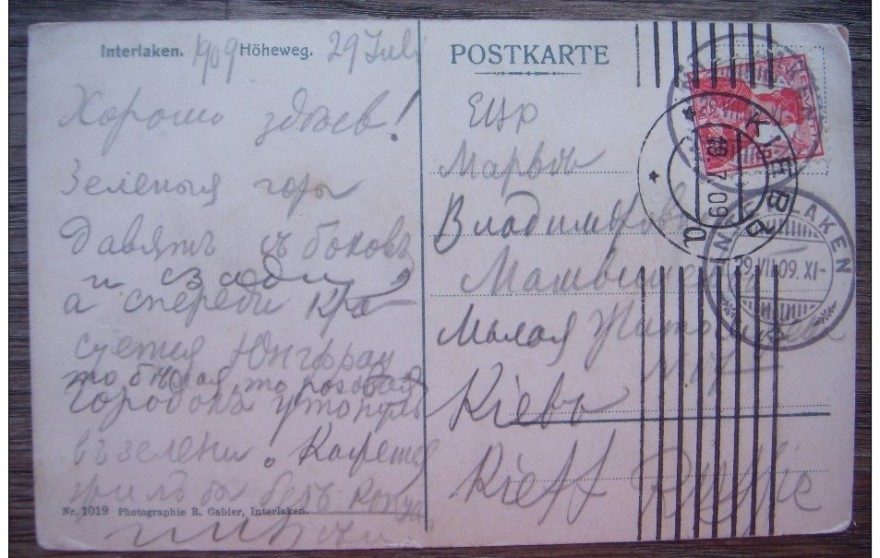 Interlaken. 1909 Höheweg. 29 Juli
Хорошо здѣсь!
Зеленыя горы
давятъ съ боковъ
и сзади,
а спереди кра
суется Юнгфрау
то бѣлая, то розовая
городокъ утонулъ
въ зелени. Кажется
жилъ бы безъ конца
Nr. 1019 Photographie R. Gabler, Interlaken.
POSTKARTE
Владиміровн
Малая Житомирская
Кіевъ
Kieff Russie
КІЕВЪ
19. 7. 09
INTERLAKEN
29.VII.09. XI-